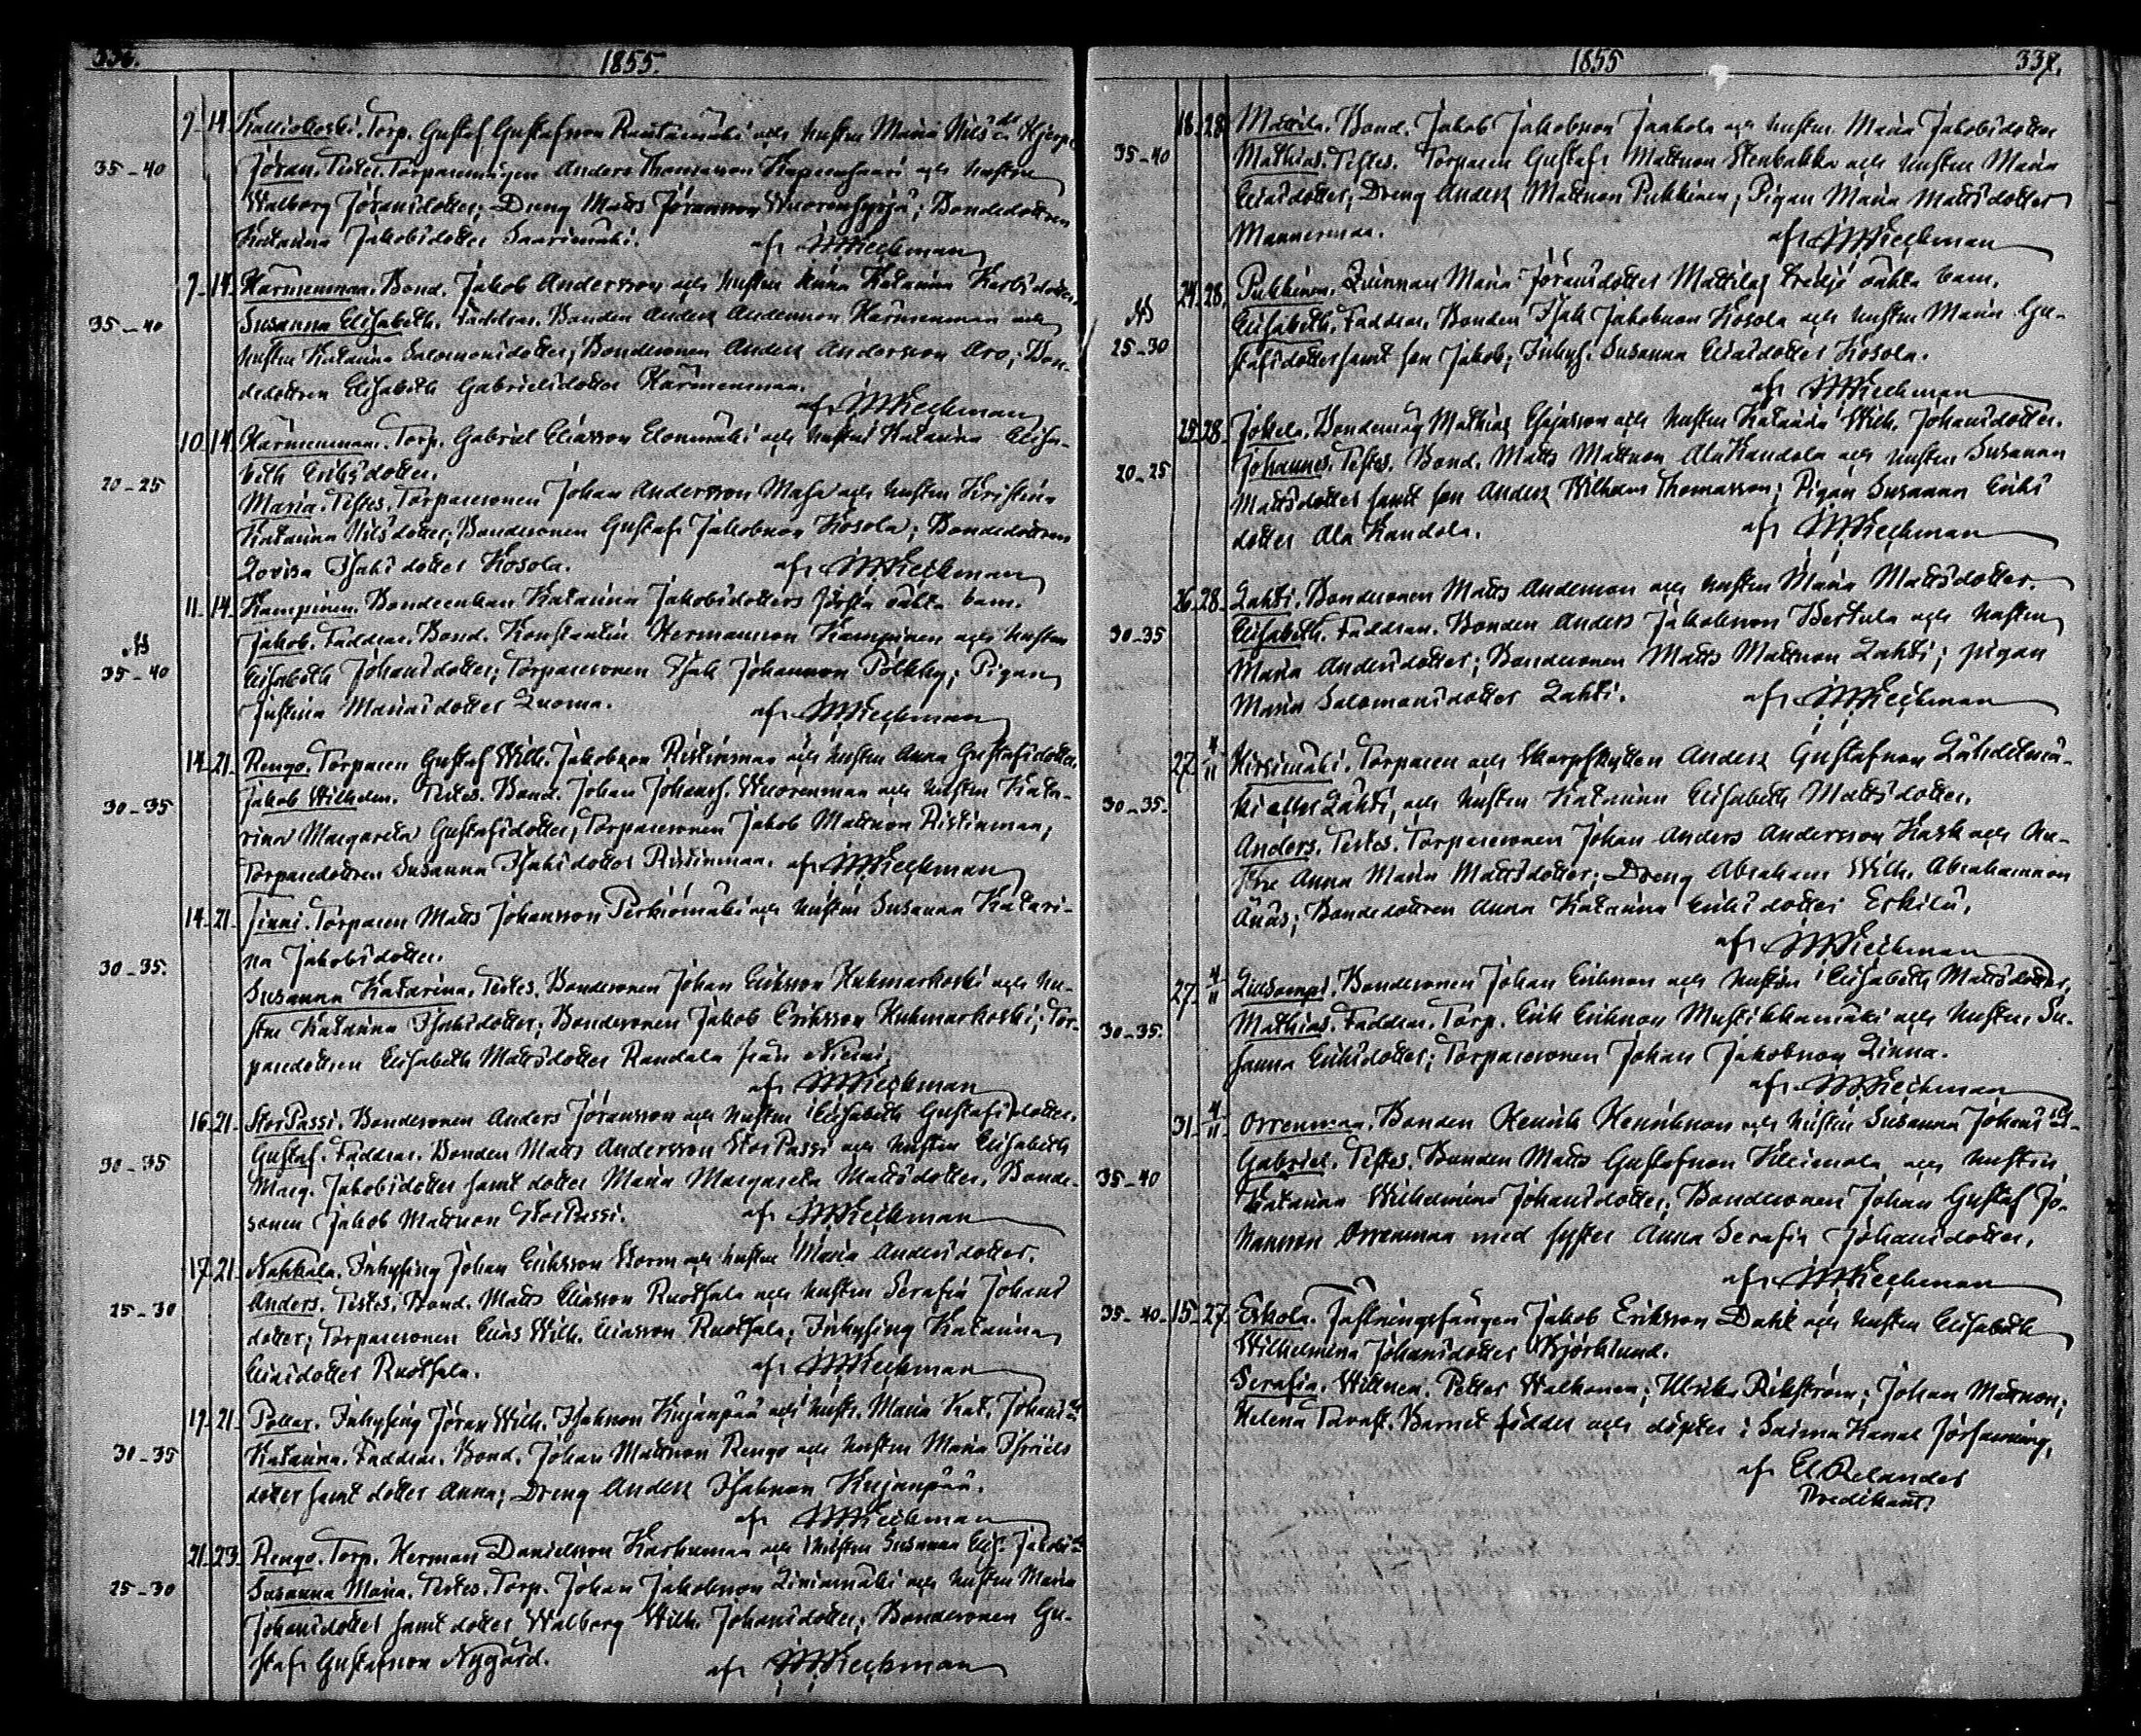 336.
1855.
9. 14. Kalliokoski. Torp. Gustaf Gustafsson Rautamäki och hustru Maria Nils dr Hjerpe
35-40 Jöran. Testes. Torparemågen Anders Thomasson och hustru
Walborg Jöransdotter; Dreng Matts Jöransson; Bondedottren
Katarina Jakobsdotter Saarimäki. af
9. 14. Härmenmaa. Bond. Jakob Andersson och hustru Anna Katarina Karlsdotter.
35-40 Susanna Elisabeth. Faddrar. Bonden Anders Andersson Härmenmaa och
hustru Katarina Salomonsdotter; Bondesonen Anders Andersson Aro; Bon-
dedottren Elisabeth Gabrielsdotter Härmenmaa.
af
10. 14. Härmenmaa. Torp. Gabriel Eliasson Elonmäki och hustru Katarina Elisa-
beth Eriksdotter.
20-25 Maria. Testes. Torparesonen Johan Andersson Masa och hustru Kristina
Katarina Nilsdotter; Bondesonen Gustaf Jakobsson Kosola; Bondedottren
Lovisa Isaksdotter Kosola. af
11. 14. Kampinen. Bondeenkan Katarina Jakobsdotters första oäkta barn.
Jakob. Faddrar. Bond. Konstantin Hermansson Kampinen och hustru
35-40 Elisabeth Johansdotter; Torparesonen Isak Johansson Pölkky; Pigan
Justina Mariasdotter Luoma. af
14. 21. Rengo. Torparen Gustaf Wilh. Jakobsson Ristinmaa och hustru Anna Gustafsdotter.
30-35 Jakob Wilhelm. Testes. Bond. Johan Johanss. Wuorenmaa och hustru Kata-
rina Margareta Gustafsdotter; Torparesonen Jakob Mattsson Ristinmaa;
Torparedottren Susanna Isaksdotter Ristinmaa. af
14. 21. Jinni. Torparen Matts Johansson Perkiömäki och hustru Susanna Katari-
30-35. na Jakobsdotter.
Susanna Katarina. Testes. Bondesonen Johan Eriksson Huhmarkoski och hu-
stru Katarina Isaksdotter; Bondesonen Jakob Eriksson Huhmarkoski; Tor-
paredottren Elisabeth Mattsdotter Randala från Niemi.
af
16. 21. StorPassi. Bondesonen Anders Jöransson och hustru Elisabeth Gustafsdotter.
30-35 Gustaf. Faddrar. Bonden Matts Andersson StorPassi och hustru Elisabeth
Marg. Jakobsdotter samt dotter Maria Margareta Mattsdotter, Bonde-
sonen Jakob Mattsson StorPassi. af
17. 21. Nahkala. Inhysing Johan Eriksson Storm och hustru Maria Andersdotter.
25-30 Anders. Testes. Bond. Matts Eliasson Ruotsala och hustru Serafia Johans
dotter; Torparesonen Elias Wilh. Eliasson Ruotsala; Inhysing Katarina
Eliasdotter Ruotsala. af
19. 21. Pollar. Inhysing Jöran Wilh. Isaksson Kujanpää och hustr. Maria Kat. Johans dr
30-35 Katarina. Faddrar. Bond. Johan Mattsson Rengo och hustru Maria Israels
dotter samt dotter Anna; Dreng Anders Isaksson Kujanpää.
af
21. 23. Rengo. Torp. Herman Danielsson Karhumaa och hustru Susanna Elis. Jakobs dr
25-30 Susanna Maria. Testes. Torp. Johan Jakobsson Liviamäki och hustru Maria
Johansdotter samt dotter Walborg Wilh. Johansdotter; Bondesonen Gu-
staf Gustafsson Nygård. af
1855
337.
18. 28. Mattila. Bond. Jakob Jakobsson Jaakola och hustru Maria Jakobsdotter
35-40 Mathias. Testes. Torparen Gustaf Mattsson Stenbakka och hustru Maria
Eliasdotter; Dreng Anders Mattsson Pukkinen; Pigan Maria Mattsdotter
Mannermaa. af
24. 28. Pukkinen. Qvinnan Maria Jöransdotter Mattilas tredje oäkta barn.
Elisabeth. Faddrar. Bonden Isak Jakobsson Kosola och hustru Maria Gu-
25-30 stafsdotter samt son Jakob; Inhys. Susanna Eliasdotter Kosola.
af
25. 28. Jokela. Bondemåg Mathias Esajasson och hustru Katarina Wilh. Johansdotter.
20-25 Johannes. Testes. Bond. Matts Mattsson AlaKandola och hustru Susanna
Mattsdotter samt son Anders Wilhelm Thomasson; Pigan Susanna Eriks
dotter Ala Kandola. af
26. 28. Lahti. Bondesonen Matts Andersson och hustru Maria Mattsdotter.
30-35 Elisabeth. Faddrar. Bonden Anders Jakobsson Bertula och hustru
Maria Andersdotter; Bondesonen Matts Mattsson Lahti; pigan
Maria Salomonsdotter Lahti. af
27. 4/11 Hirsimäki. Torparen och Skarpskytten Anders Gustafsson Lähdetmä-
30-35. ki eller Lahti, och hustru Katarina Elisabeth Mattsdotter.
Anders. Testes. Torparesonen Johan Anders Andersson Kask och hu-
stru Anna Maria Mattsdotter; Dreng Abraham Wilh. Abrahamsson
Änäs; Bondedottren Anna Katarina Eriksdotter Eskilä.
af
27. 4/11 Bondesonen Johan Eriksson och hustru Elisabeth Mattsdotter.
30-35. Mathias. Faddrar. Torp. Erik Eriksson Mustikkamäki och hustru Su-
sanna Eriksdotter; Torparesonen Johan Jakobsson Linna.
af
31. 4/11 Orrenmaa. Bonden Henrik Henriksson och hustru Susanna Johans dr
35-40 Gabriel. Testes. Bonden Matts Gustafsson Kleimola och hustru
Katarina Wilhelmina Johansdotter; Bondesonen Johan Gustaf Jo-
hansson Orrenmaa med syster Anna Serafia Johansdotter.
af
35-40. 15. 27. Eskola. Fästningsfången Jakob Eriksson Dahl och hustru Elisabeth
Wilhelmina Johansdotter Björklund.
Serafia. Wittnen. Petter Walkonen; Ulrika Rikström; Johan Mattsson;
Helena Tavast. Barnet född och döpter i Saima Kanal församling,
af El. Relander
Predikant.